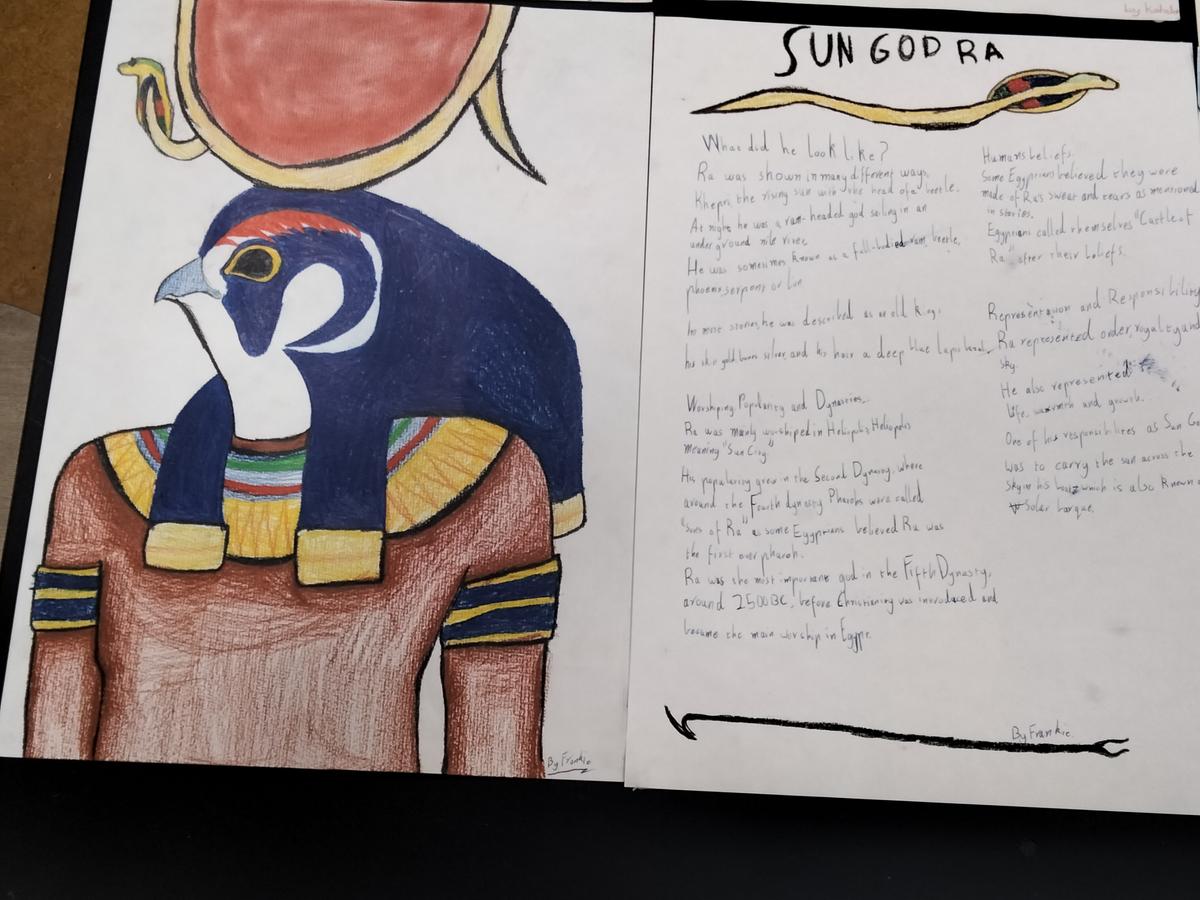 SUN GOD RA
What did he look like?
Ra was shown in many different ways.
Khepri, the rising sun with the head of a beetle.
At night he was a ram-headed god sailing in an
underground nile river.
He was sometimes known as a full-bodied ram, beetle,
phoenix, serpent or lion
In most stories, he was described as an old king:
his skin gold bones silver, and his hair a deep blue lapis
Worshiping, Popularity and Dynasties.
Ra was mainly worshiped in Heliopolis Heliopolis
meaning "Sun City"
His popularity grew in the Second Dynasty, where
around the Fourth dynasty Pharohs were called
"sons of Ra" as some Egyptians believed Ra was
the first ever pharoh.
Ra was the most important god in the Fifth Dynasty,
around 2500BC, before Christianity was introduced and
became the main worship in Egypt.
Humans beliefs.
Some Egyptians believed they were
made of Ra's sweat and tears as mentioned
in stories.
Egyptians called themselves "Cattle of
Ra" after their beliefs.
Representation and Responsibility
Ra represented order, royalty and
sky.
He also represented
life, warmth and growth.
One of his responsibilites as Sun Go
was to carry the sun across the
sky in his boat which is also known
Solar barque.
By Frankie.
By Frankie